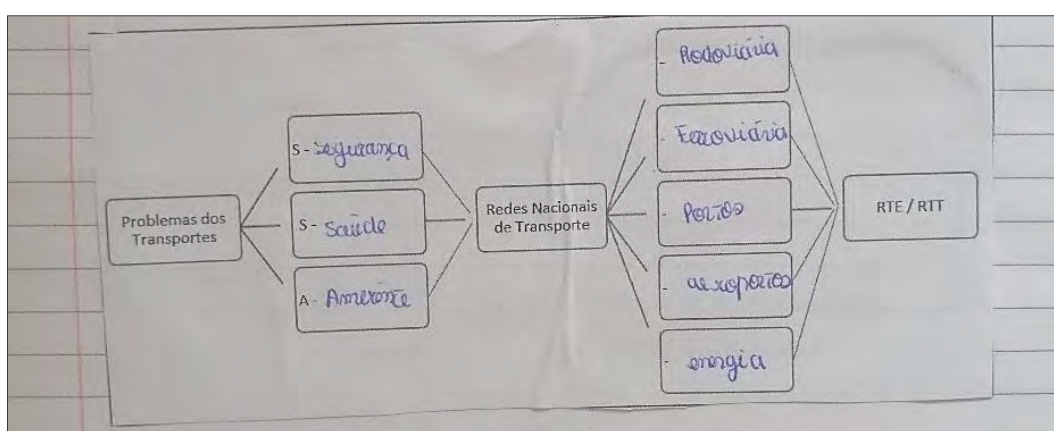 Problemas dos
Transportes
S - segurança
S - Saúde
A - Ambiente
Redes Nacionais
de Transporte
- Rodoviária
- Ferroviária
- Portos
- aeroportos
- energia
RTE / RTT